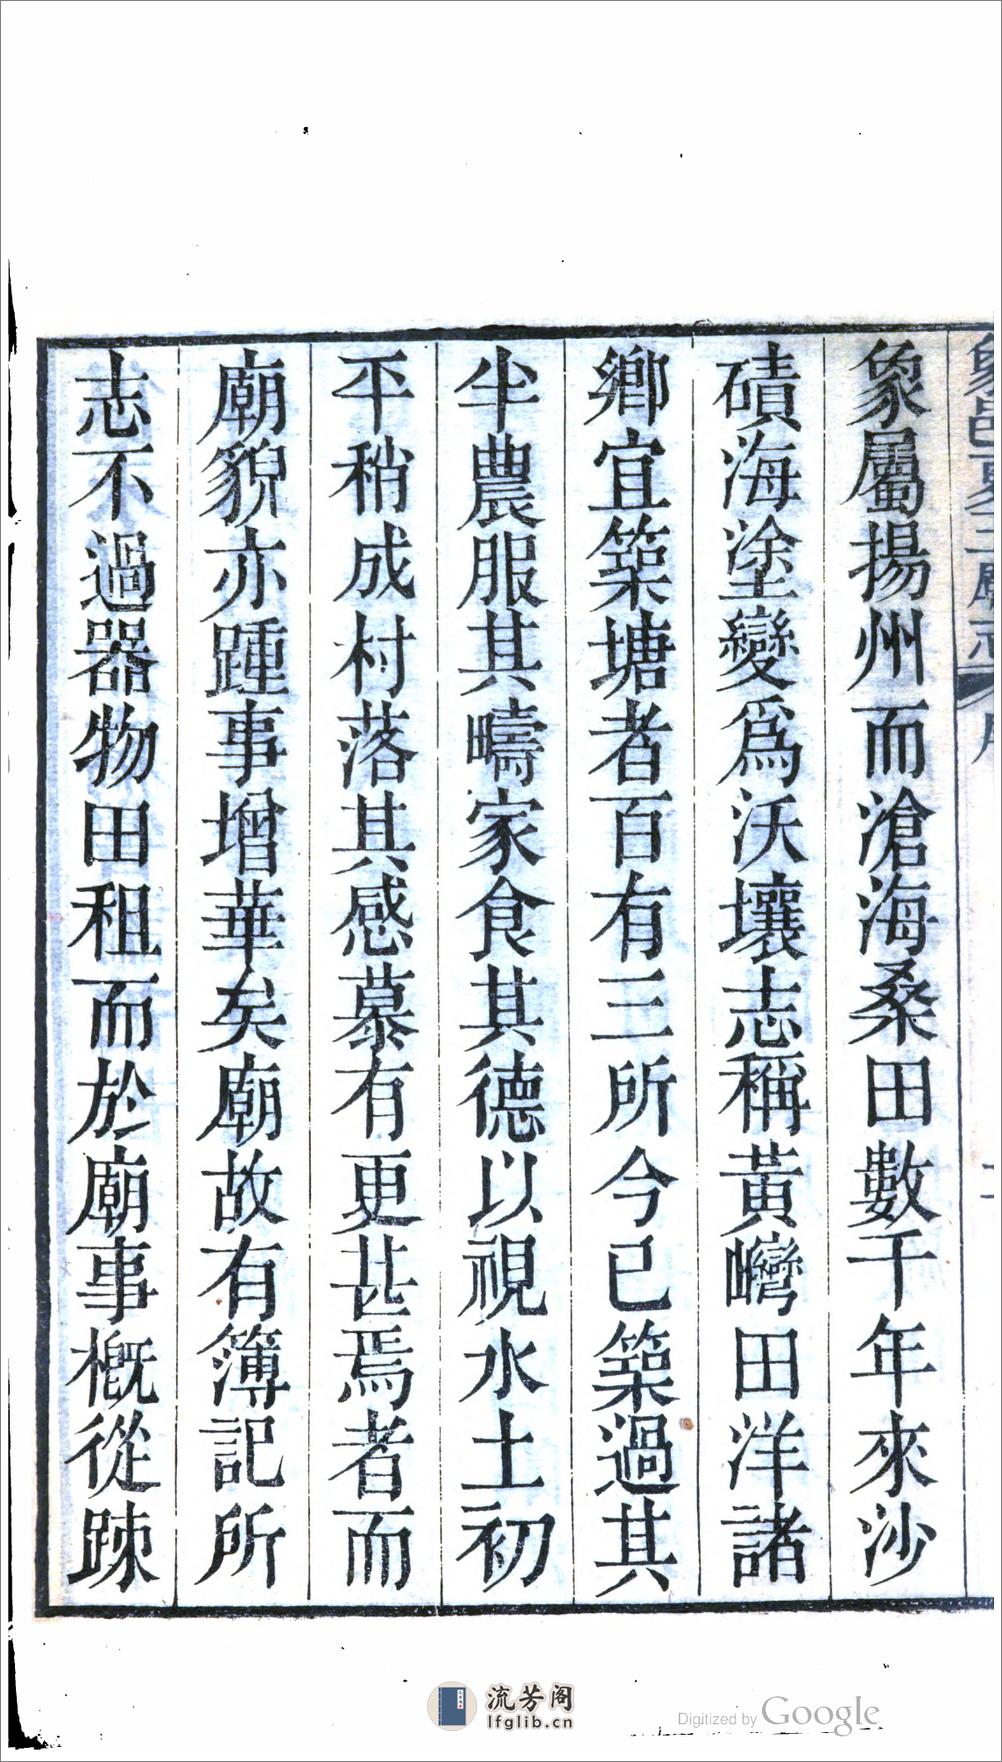 象屬揚州而滄海桑田數千年來沙
磧海塗變爲沃壤志稱黃巒田洋諸
鄉宜築塘者百有三所今已築過其
半農服其疇家食其德以視水土初
平稍成村落其感慕有更甚焉者而
廟貌亦踵事增華矣廟故有簿記所
志不過器物田租而於廟事概從踈
流芳阁
lfglib.cn
Digitized by Google